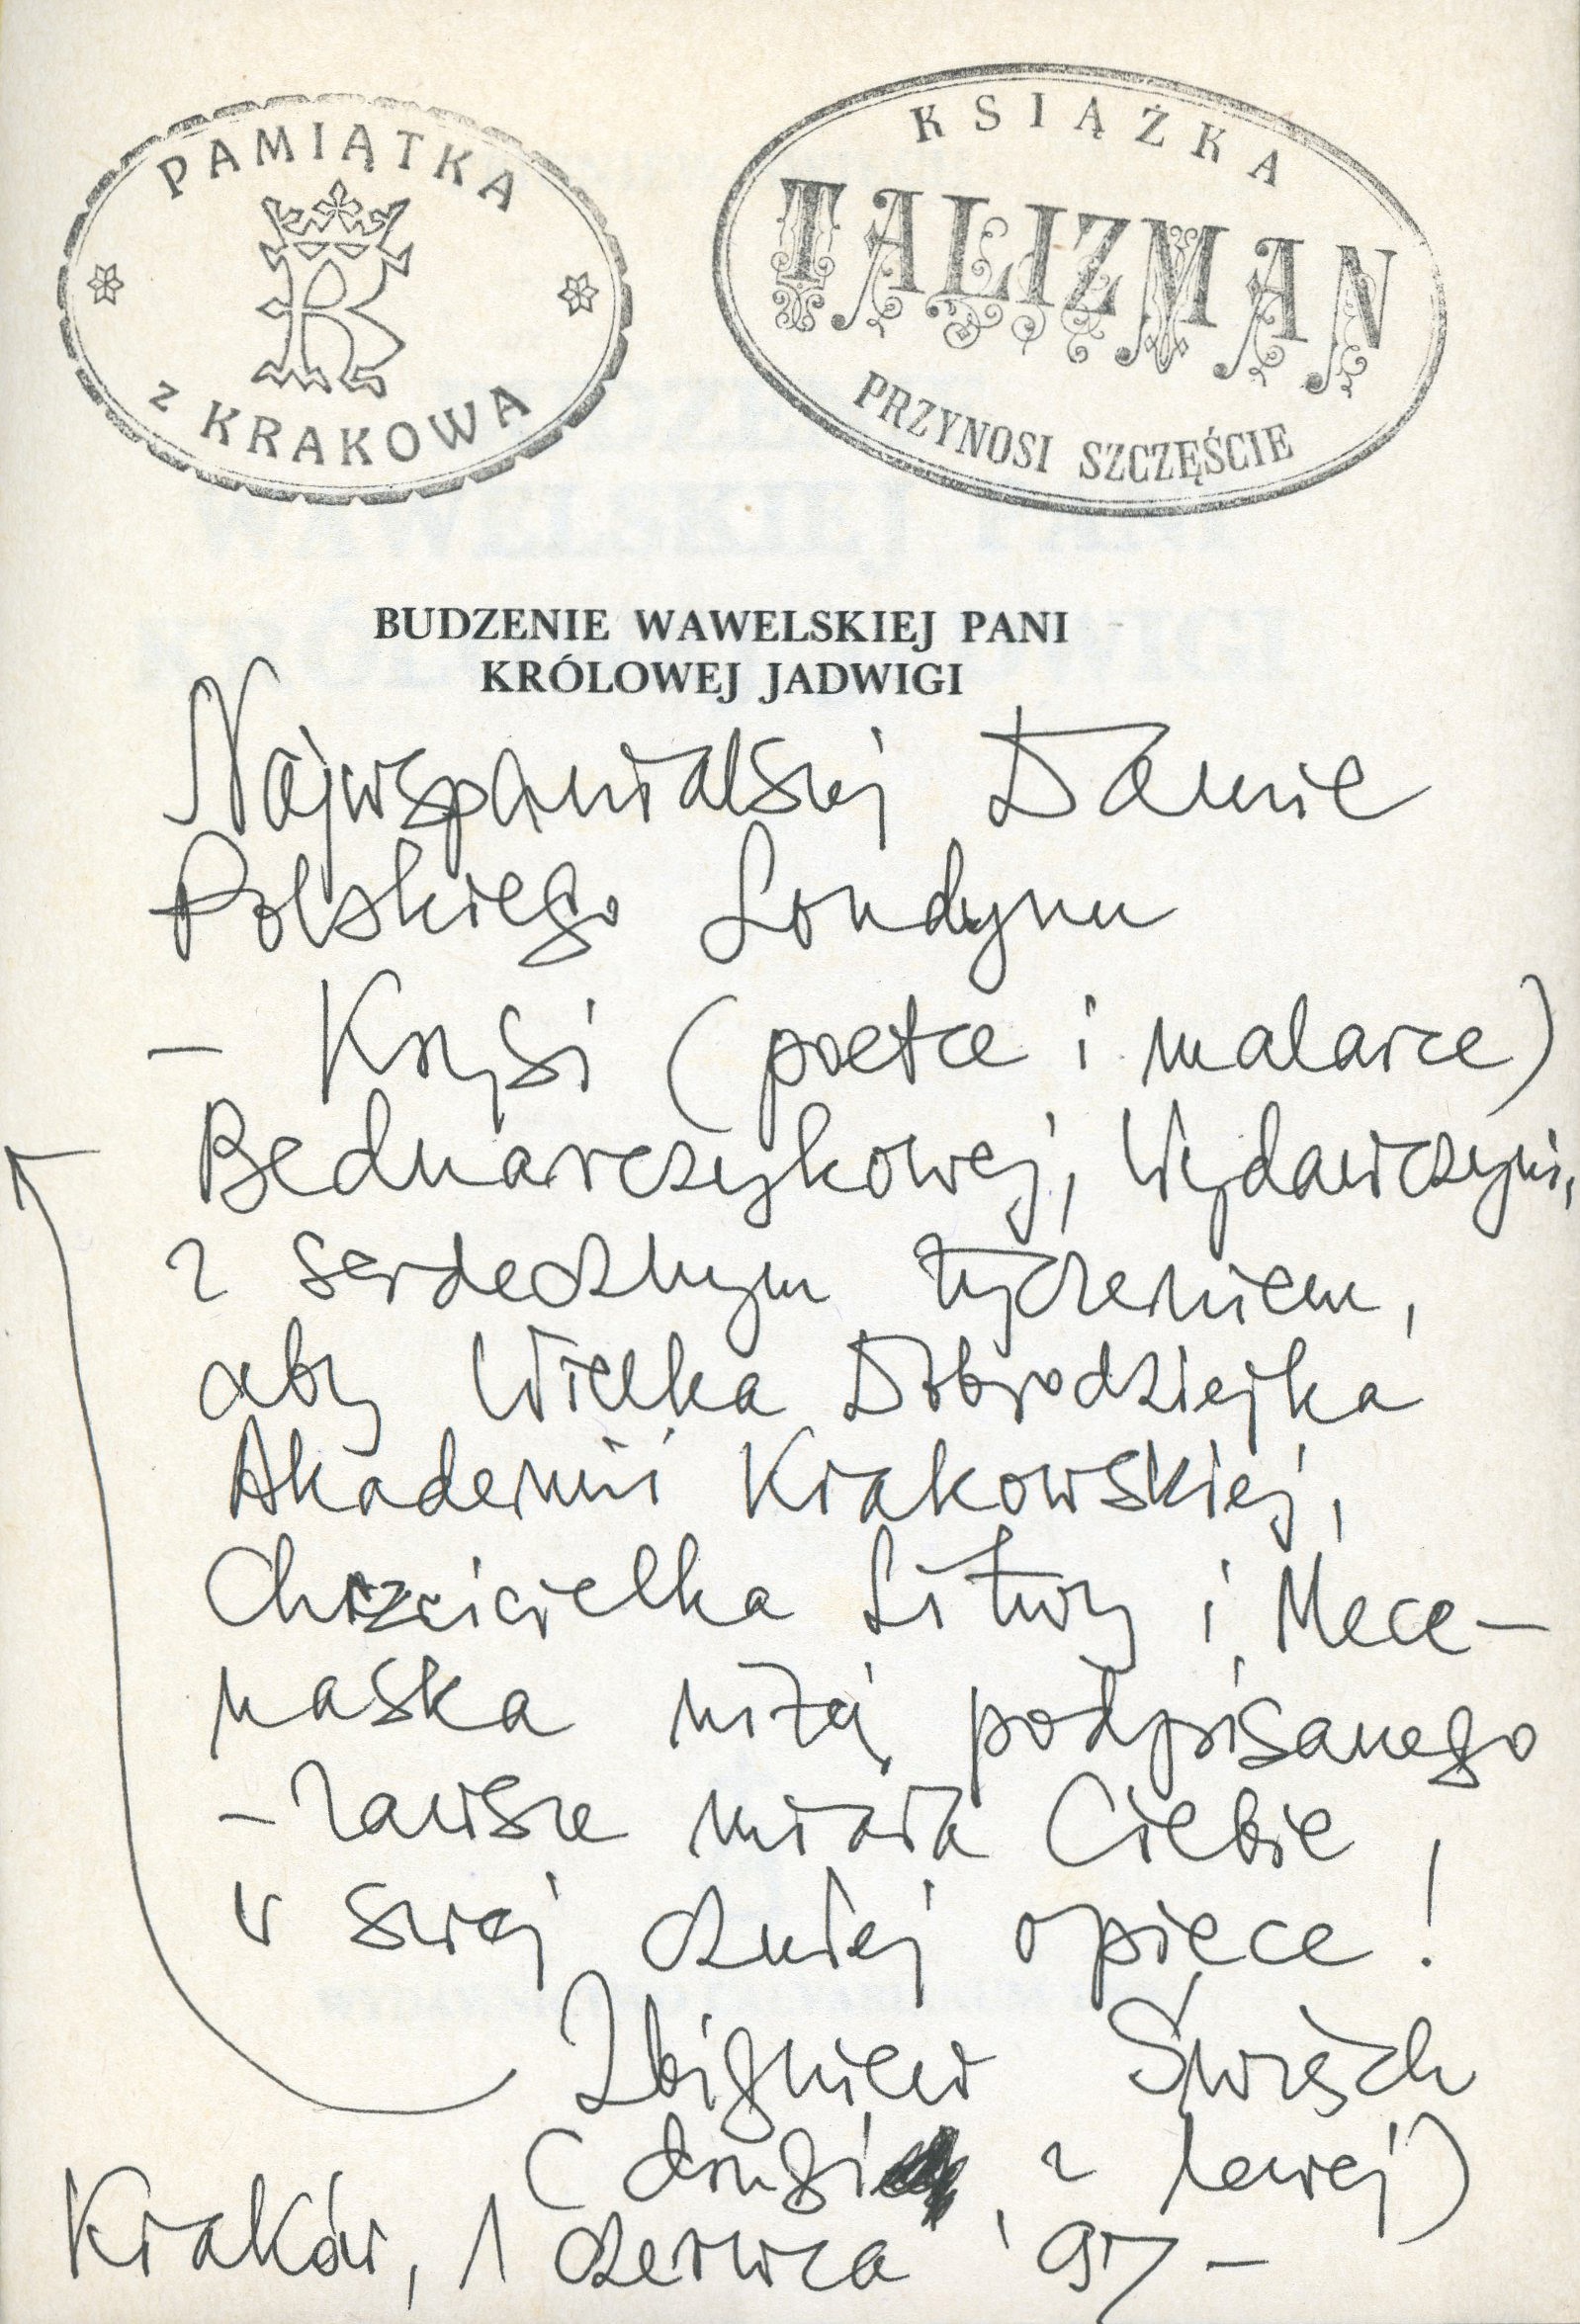 PAMIĄTKA
z KRAKOWA
KSIĄŻKA
TALIZMAN
PRZYNOSI SZCZĘŚCIE
BUDZENIE WAWELSKIEJ PANI
KRÓLOWEJ JADWIGI
Najwspanialszej Damie
Polskiego Londynu
– Krysi (poetce i malarce)
Bednarczykowej, Wydawczyni,
z serdecznym życzeniem,
aby Wielka Dobrodziejka
Akademii Krakowskiej,
Chrzcicielka Litwy i Mece–
naska niżej podpisanego
– zawsze miała Ciebie
w swej czułej opiece!
Zbigniew Święch
(drugi z lewej)
Kraków, 1 czerwca '97 –